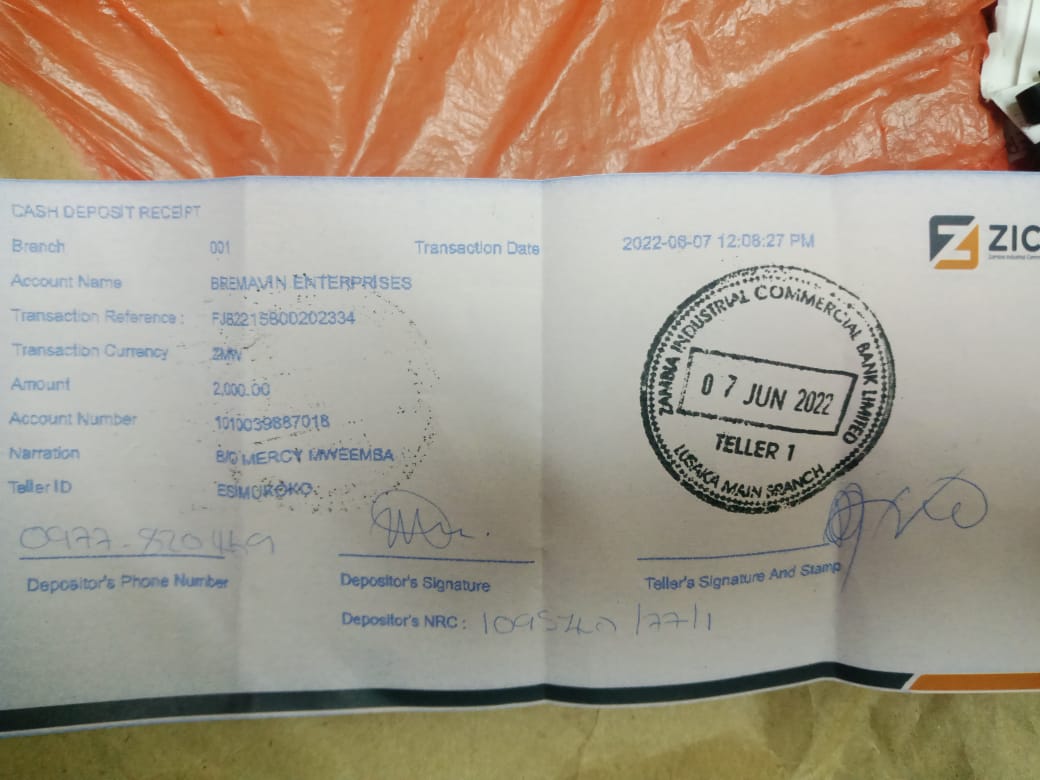 CASH DEPOSIT RECEIPT
Branch 001 Transaction Date 2022-06-07 12:08:27 PM
ZIC
Account Name BREMAVIN ENTERPRISES
Transaction Reference : FJB2215800202334
Transaction Currency ZMW
Amount 2,000.00
Account Number 1010039887018
Narration B/O MERCY MWEEMBA
Teller ID ESIMUKOKO
ZAMBIA INDUSTRIAL COMMERCIAL BANK LIMITED
07 JUN 2022
TELLER 1
LUSAKA MAIN BRANCH
Depositor's Phone Number
Depositor's Signature
Teller's Signature And Stamp
Depositor's NRC : /77/1